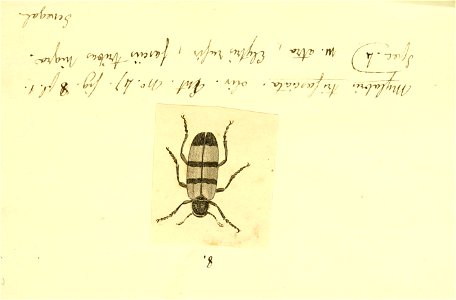 Mylabris trifasciata. oliv. Ent. No. 47. fig. 8 pl. 1.
Spec. 4) M. atra, Elytris rufis, fasciis tribus nigris.
Senegal.
8.